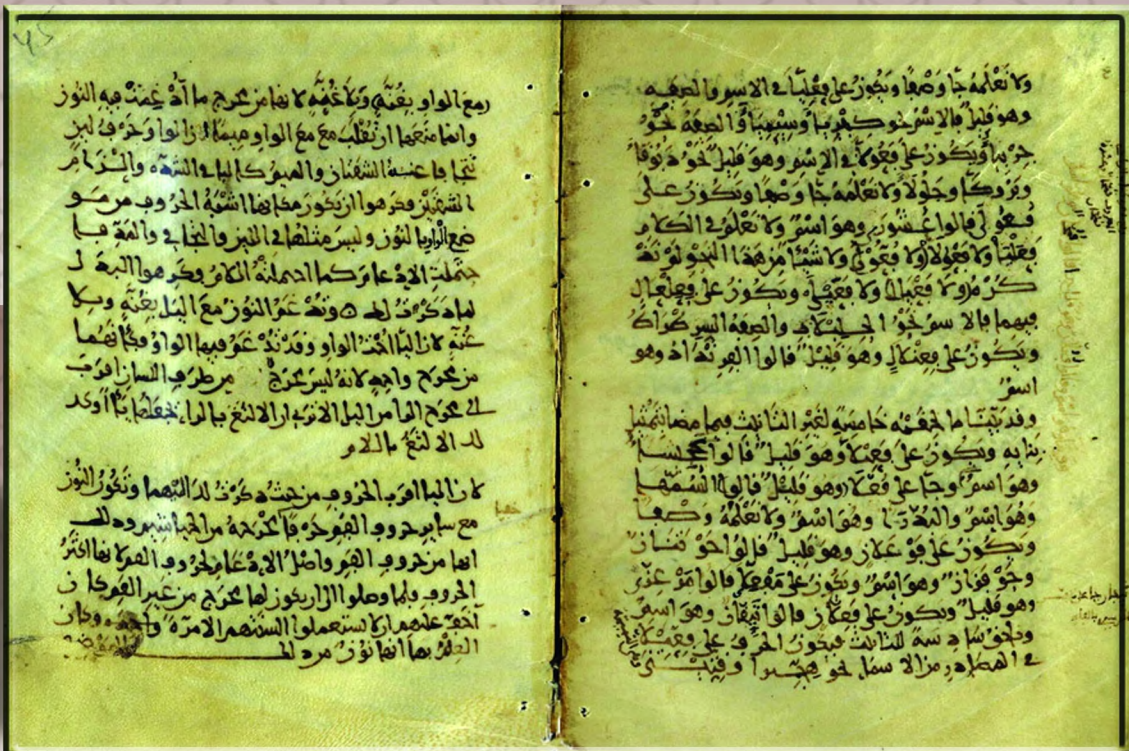 ولا نعلمه جا وصفا ويكون على فعليا في الاسم والصفه
وهو قليل فالاسم نحو كبريا وسيميا والصفة نحو
جربيا ويكون على فعولا في الاسم وهو قليل نحو دبوقا
وبروكا وجلولا ولا نعلمه جا وصفا ويكون على
فعولى قالوا عشورى وهو اسم ولا نعلم في الكلام
فعليا ولا فعولا ولا فعولى ولا شيا من هذا النحو لم نذ
كره ولا فعيلا ولا فعيلى ويكون على فعلعال
فيهما فالاسم نحو الحلبلاب والصفه السرطراط
ويكون على فعنلال وهو قليل قالوا الفرنداد وهو
اسم
وقد بينا ما لحقته خامسة لغير التانيث فيما مضا بتمثيل
بنايه ويكون على فعنلا وهو قليل قالوا
وهو اسم وجا على فعلا وهو قليل قالوا السمها
وهو اسم والبدرا وهو اسم ولا نعلمه وصفا
ويكون على فوعلان وهو قليل قالوا حوتنان
وحوفزان وهو اسم ويكون على مفعلا قالوا مرعزى
وهو قليل ويكون على قالوا تيفان وهو اسم
وتلحق سادسة للتانيث فيكون الحرف على فعيلا
في المصادر من الاسما نحو هجيرا وقتيتى
45
مع الواو بغنة وبلا غنة لانها من مخرج ما ادغمت فيه النون
وانما منعها ان تقلب مع الواو ميما ان الواو حرف لين
تتجافا عنه الشفتان والميم كالبا في الشدة والزام
الشفتين فكرهوا ان يكون مكانها اشبه الحروف من مو
ضع الواو بالنون وليس مثلها في اللين والتجافي والمد فا
حتملت الادغام كما احتملته اللام وكرهوا البدل
لما ذكرت لك وتدغم النون مع اليا بغنة وبلا
غنة لان اليا اخت الواو وقد تدغم فيها الواو فكانهما
من مخرج واحد لانه ليس مخرج من طرف اللسان اقرب
الى مخرج الرا من اليا الا ترى ان الالثغ بالرا يجعلها يا وكذ
لك الالثغ باللام
لان اليا اقرب الحروف من حيث ذكرت لك اليهما وتكون النون
مع ساير حروف الفم حرفا مخرجه من الخياشيم وذلك
انها من حروف الفم واصل الادغام لحروف الفم لانها اكثر
الحروف فلما وصلوا الى ان يكون لها مخرج من غير الفم كان
اخف عليهم ان لا يستعملوا السنتهم الا مرة واحده وكان
العلم بها انها نون من ذلك